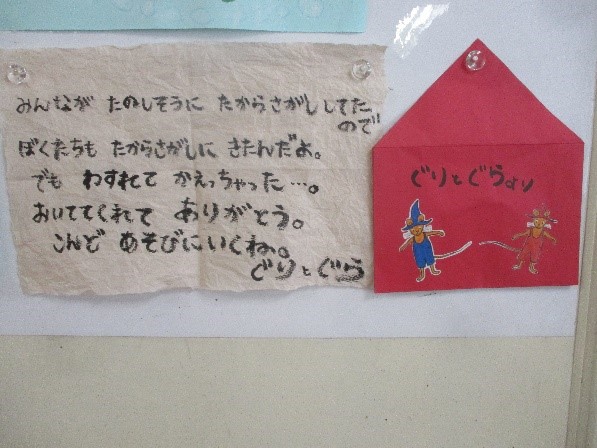 みんなが たのしそうに たからさがし してた
ので
ぼくたちも たからさがしに きたんだよ。
でも わすれてて かえっちゃった…。
おいててくれて ありがとう。
こんど あそびにいくね。
ぐりとぐら
ぐりとぐらより